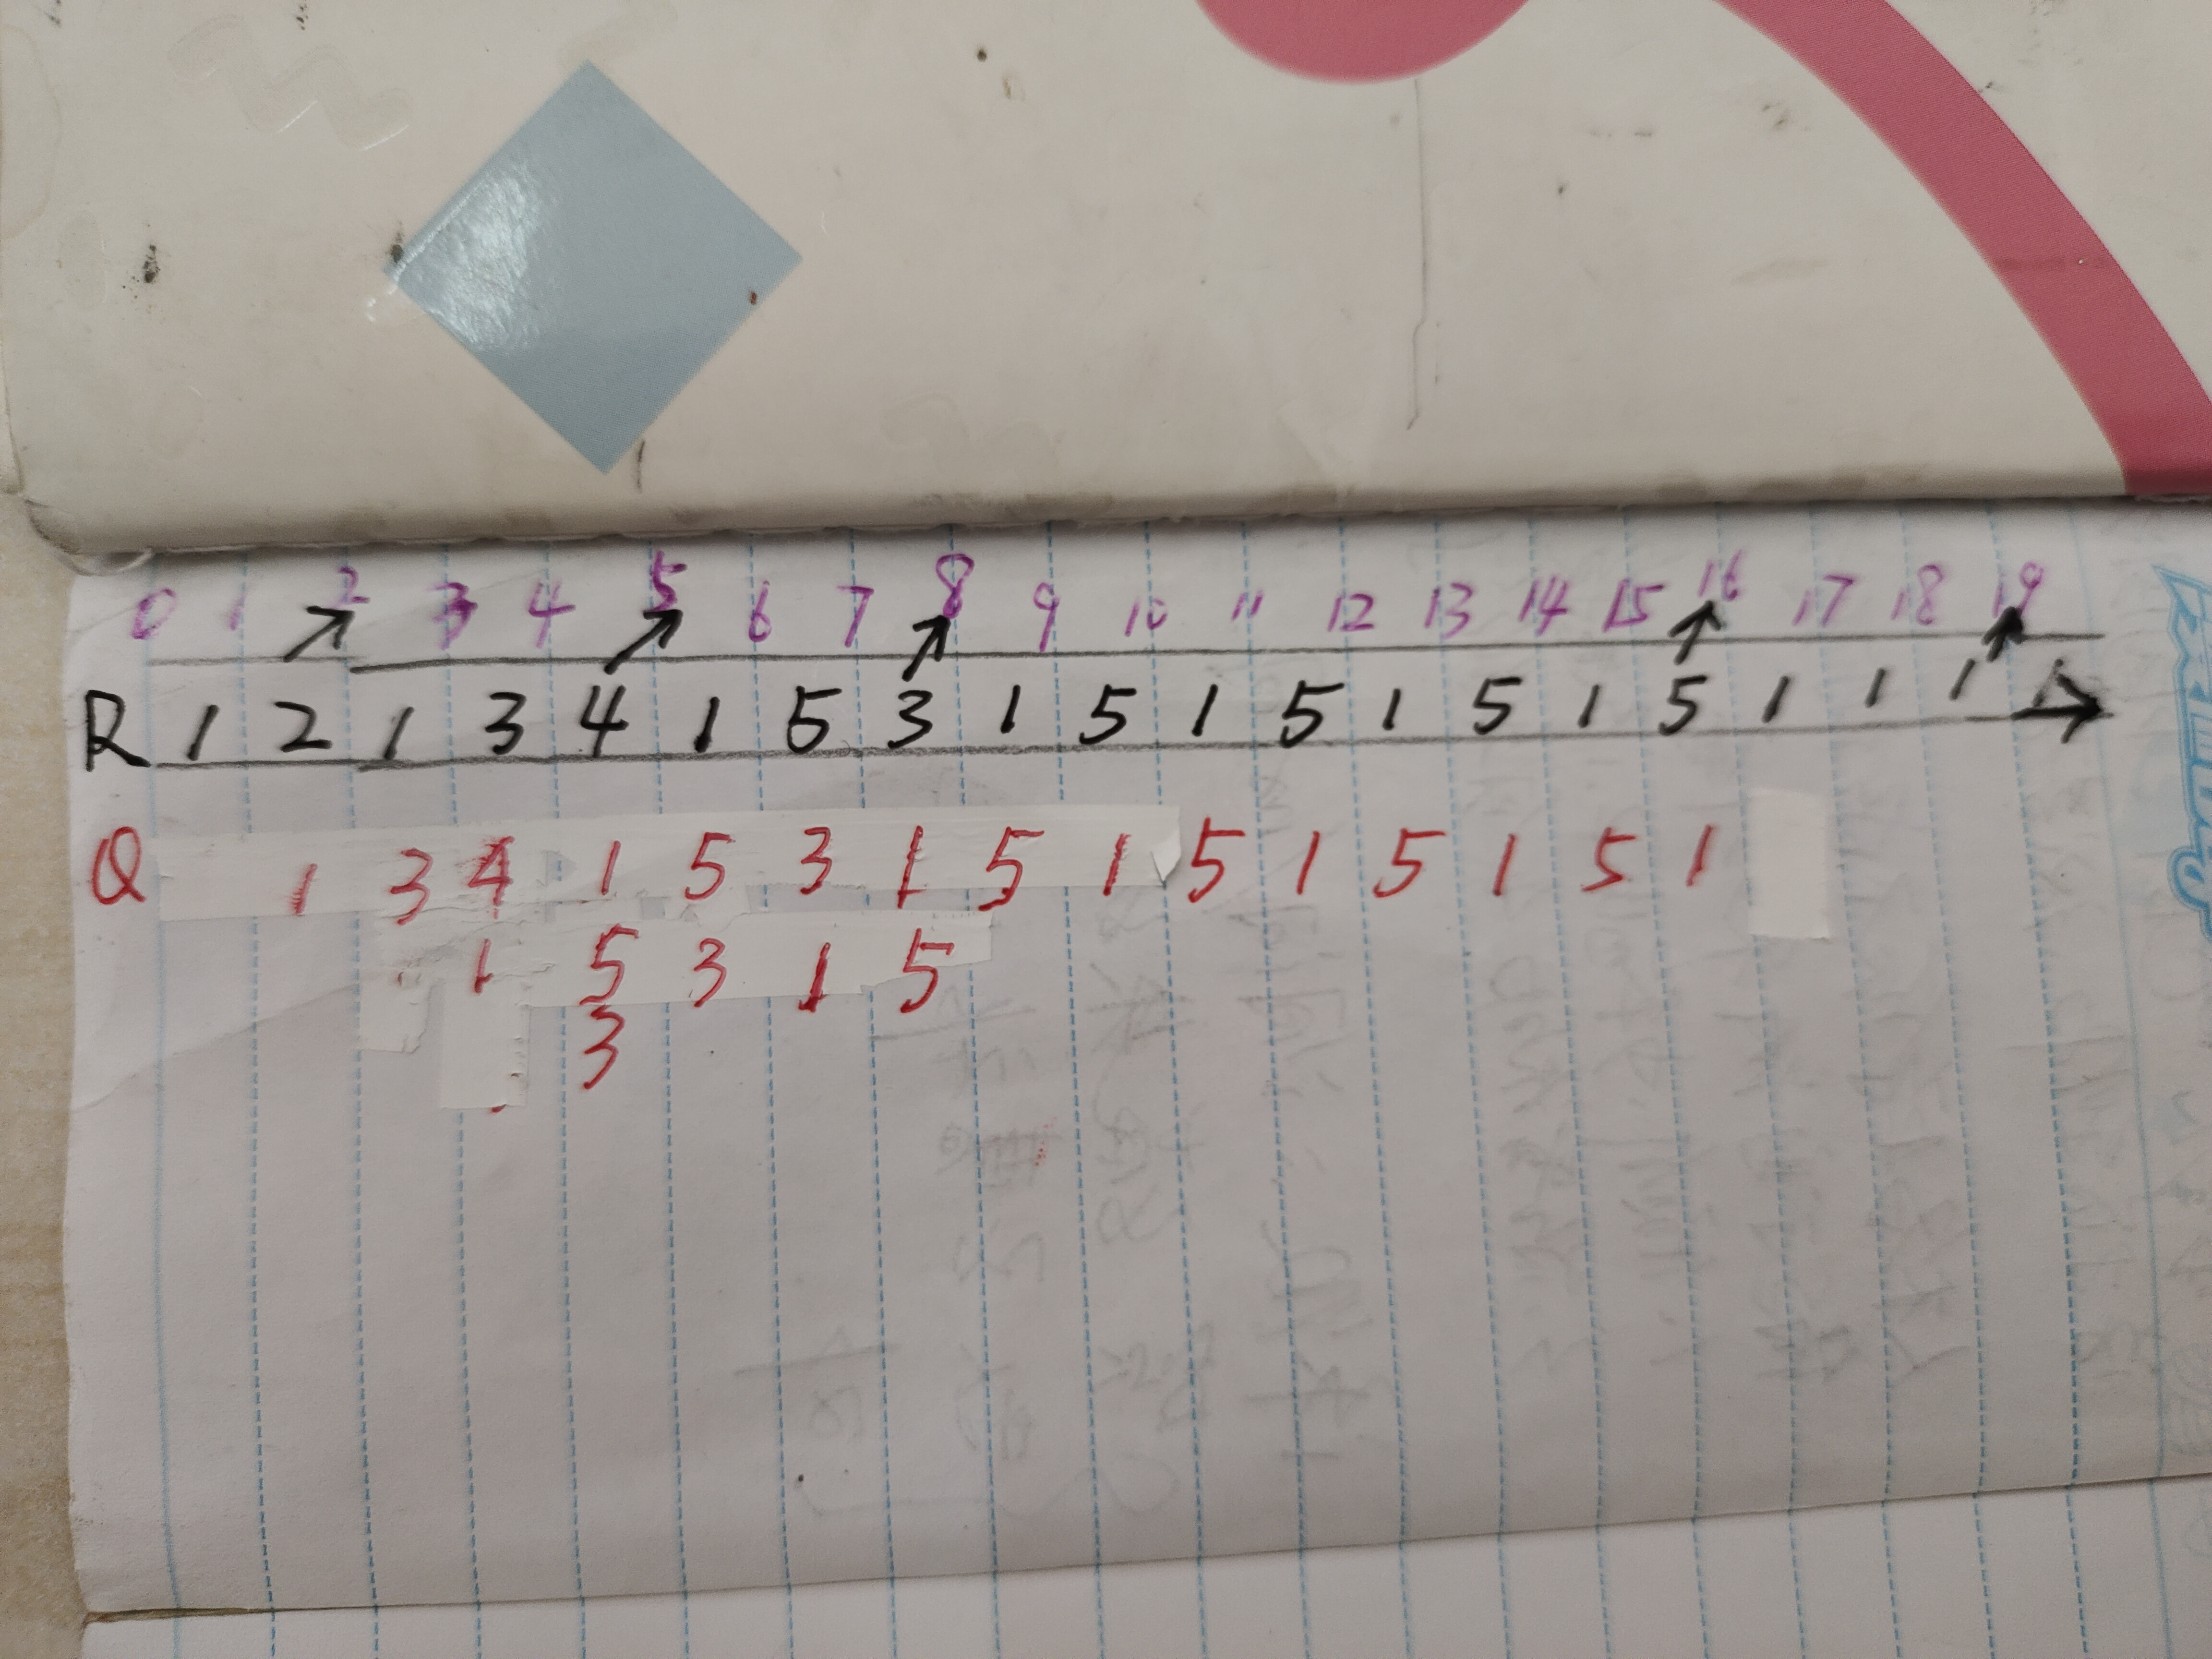 0 1 2 3 4 5 6 7 8 9 10 11 12 13 14 15 16 17 18 19
R 1 2 1 3 4 1 5 3 1 5 1 5 1 5 1 5 1 1 1
Q 1 3 4 1 5 3 1 5 1 5 1 5 1 5 1
1 5 3 1 5
3